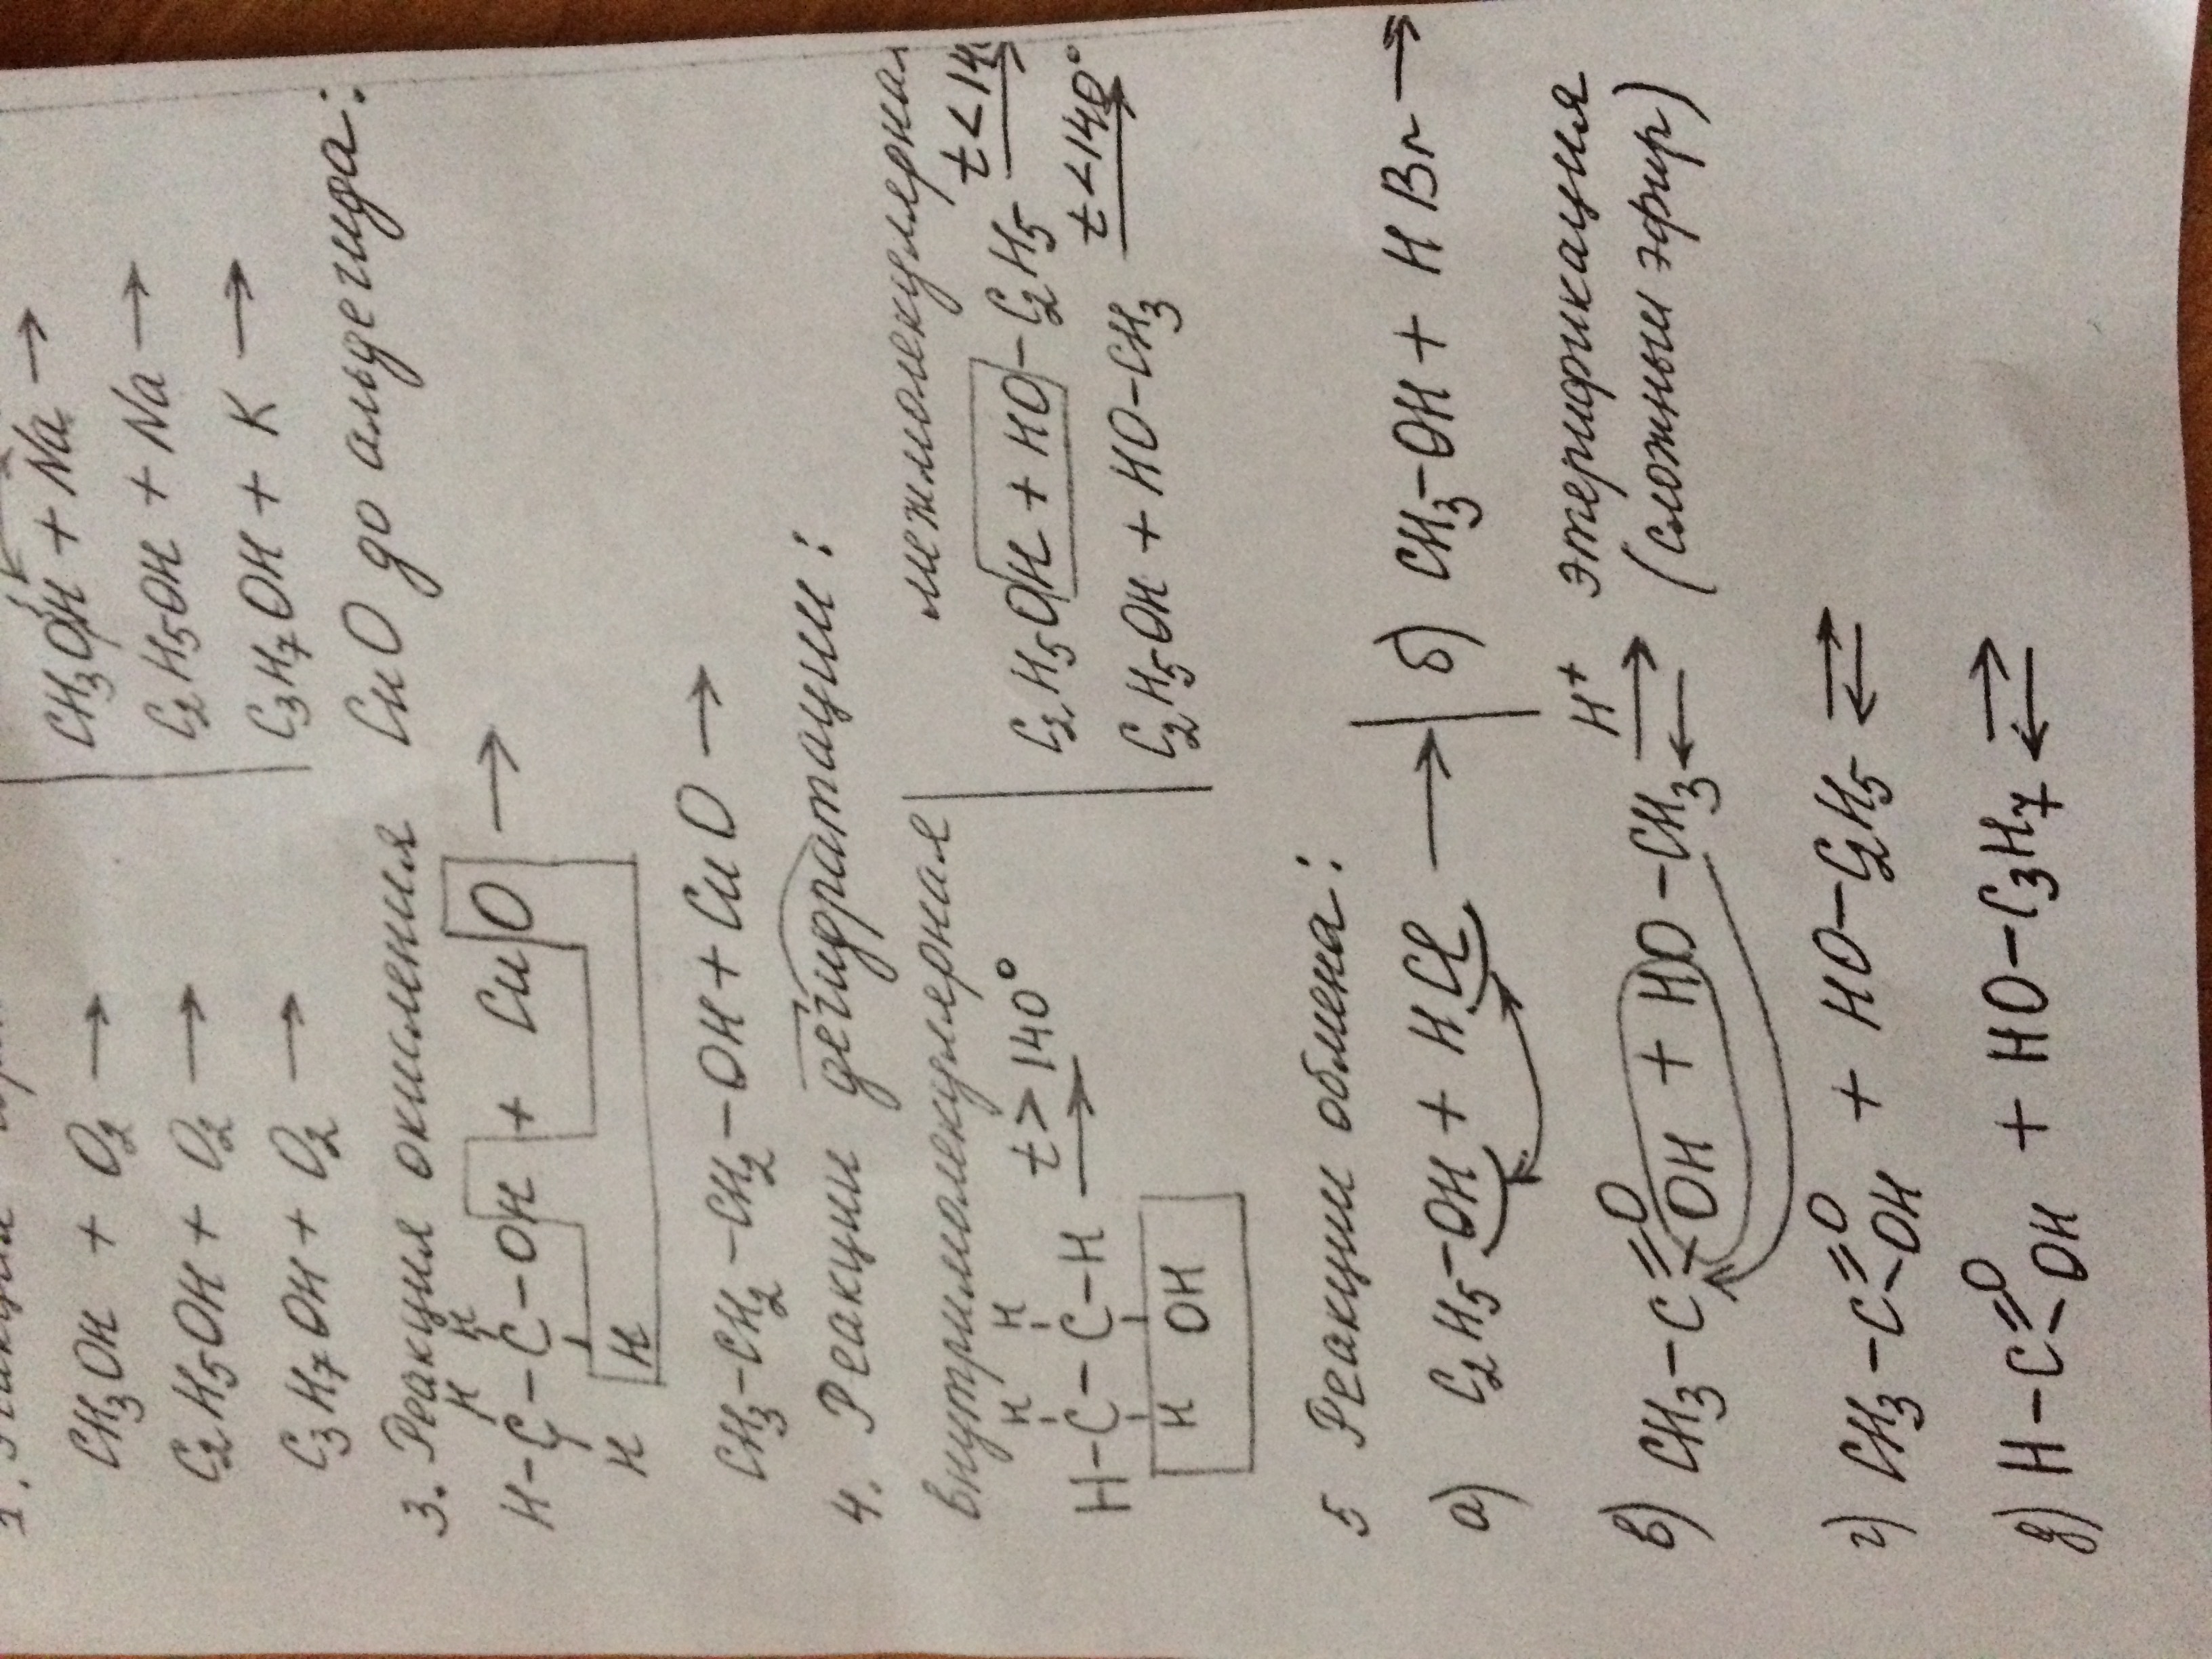 CH₃OH + O₂ →
C₂H₅OH + O₂ →
C₃H₇OH + O₂ →
CH₃OH + Na →
C₂H₅OH + Na →
C₃H₇OH + K →
3. Реакция окисления CuO до альдегида:
H H
H–C–C–OH + CuO →
H H
CH₃–CH₂–CH₂–OH + CuO →
4. Реакции дегидратации:
внутримолекулярная
H H t > 140°
H–C–C–H →
H OH
межмолекулярная
C₂H₅OH + HO–C₂H₅ t < 14
C₂H₅OH + HO–CH₃ t < 140° →
5 Реакции обмена:
а) C₂H₅–OH + HCl → | б) CH₃–OH + HBr →
в) CH₃–C=O OH + HO–CH₃ H⁺ ⇄ этерификация
(сложный эфир)
г) CH₃–C=O OH + HO–C₂H₅ ⇄
д) H–C=O OH + HO–C₃H₇ ⇄